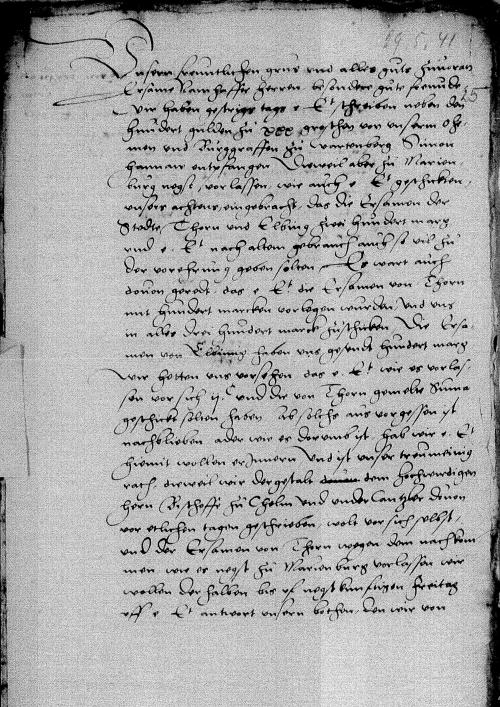 19. 5. 41
Unsern freuntlichen grus und alles guts zuvoran
Ersame Namhaffte herren besonder gute freunde
Wir haben gestrigs tags e. Et schreiben neben den
hundert gulden zu xxx groschen von unserm ohe-
men und Burggraffen zu Wartenberg Simon
hannau entpfangen Dieweil aber zu Marien-
burg negst vorlassen, wie auch e. Et geschickten,
unsere achteur, eingebracht, das die Ersamen der
Stedte Thorn und Elbing zwei hundert marg
und e. Et nach altem gebrauch auch so vil zu
der vorehrung geben solten Es wart auch
davon geredt, das e. Et die Ersamen von Thorn
mit hundert marcken vorlegen wurden, und uns
in alles drei hundert marck zuschicken Die Ersa-
men von Elbing haben uns gesandt hundert marg
Wir hetten uns vorsehen das e. Et wie es vorlas-
sen vor sich ij C und die von Thorn gemelte Suma
geschickt solten haben Ab solchs aus vorgessen ist
nachblieben ader wie es dorumb ist, hab wir e. Et
hiemit wollen erInnern Und ist unser treumeinig
rath dieweil wir dergestalt dem hochwirdigen
hern Bischoffe zu Cholm und under Cantzler davon
vor etlichen tagen geschrieben, wolt vor sich selbst,
und der Ersamen von Thorn wegen dem nachkom-
men wie es negst zu Marienburg vorlassen wir
wollen derhalben bis uf negstkunftigen freitag
uff e. Et antwort unsern bothen, den wir von